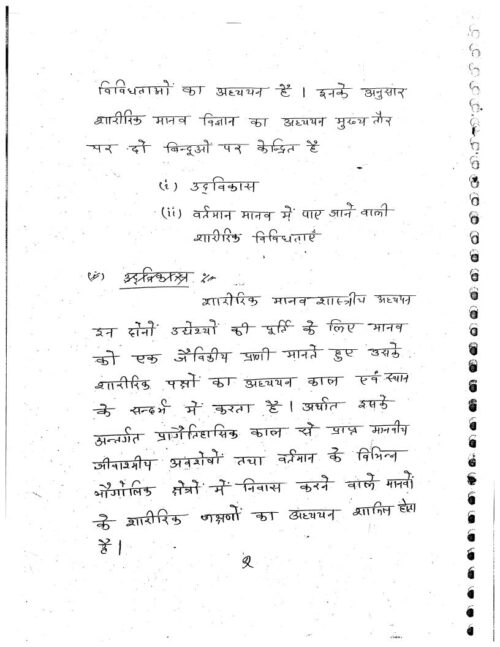 विविधताओं का अध्ययन है । इनके अनुसार
शारीरिक मानव विज्ञान का अध्ययन मुख्य तौर
पर दो बिन्दूओं पर केन्द्रित है
(i) उद्दविकास
(ii) वर्तमान मानव में पाए जाने वाली
शारीरिक विविधताएँ
(i) उद्दविकास :-
शारीरिक मानव शास्त्रीय अध्ययन
इन दोनों उद्येश्यों की पूर्ति के लिए मानव
को एक जैविकीय प्राणी मानते हुए उसके
शारीरिक पक्षों का अध्ययन काल एवं स्थान
के सन्दर्भ में करता है । अर्थात इसके
अन्तर्गत प्रागैतिहासिक काल से प्राप्त मानवीय
जीवाश्मीय अवशेषों तथा वर्तमान के विभिन्न
भौगोलिक क्षेत्रों में निवास करने वाले मानवों
के शारीरिक लक्षणों का अध्ययन शामिल होता
है ।
2